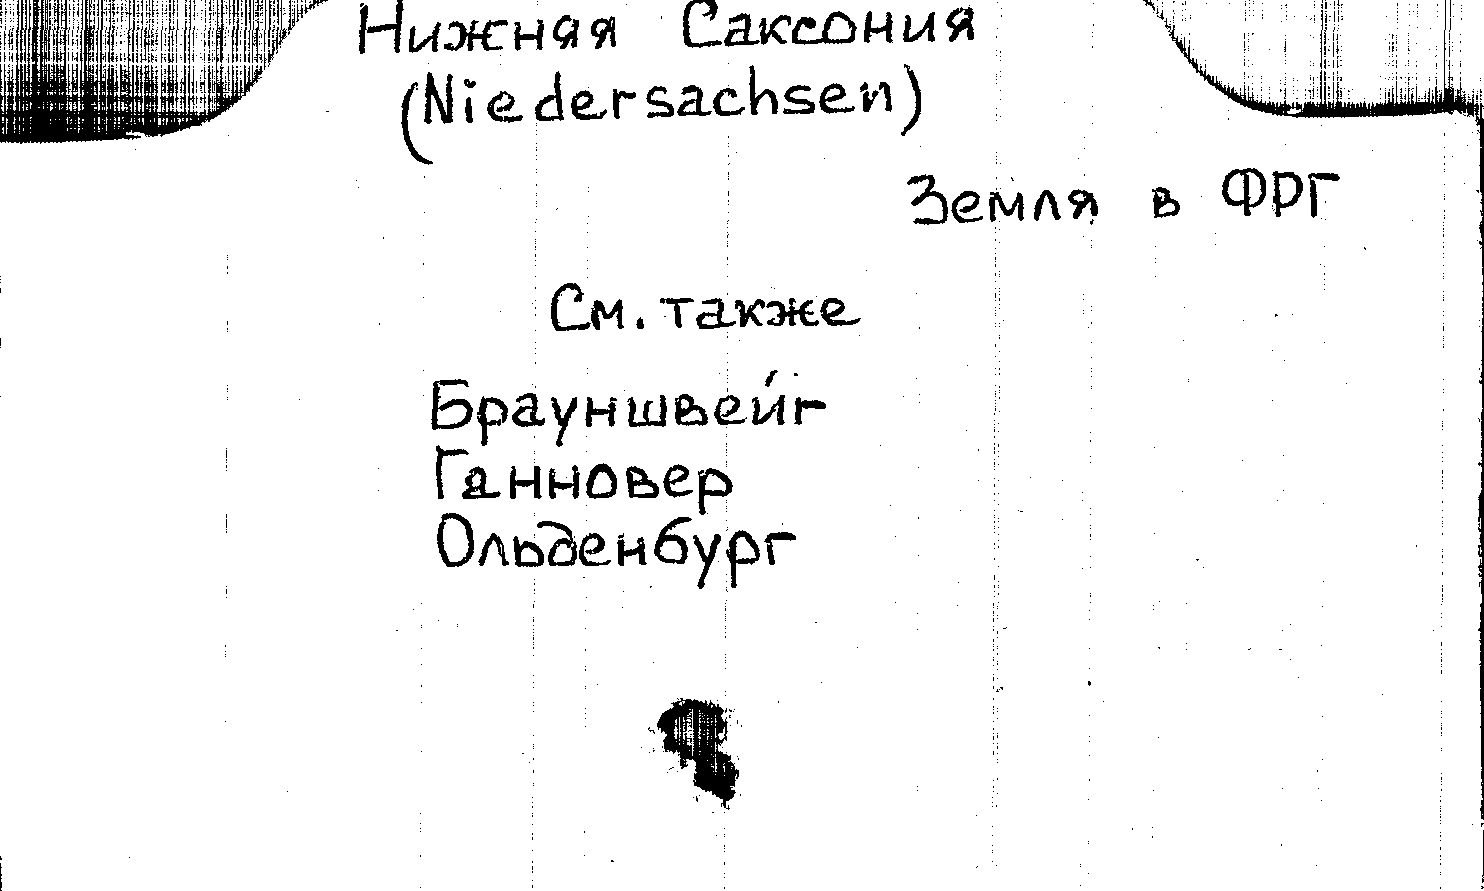 Нижняя Саксония
(Niedersachsen)
Земля в ФРГ
См. также
Брауншвейг
Ганновер
Ольденбург